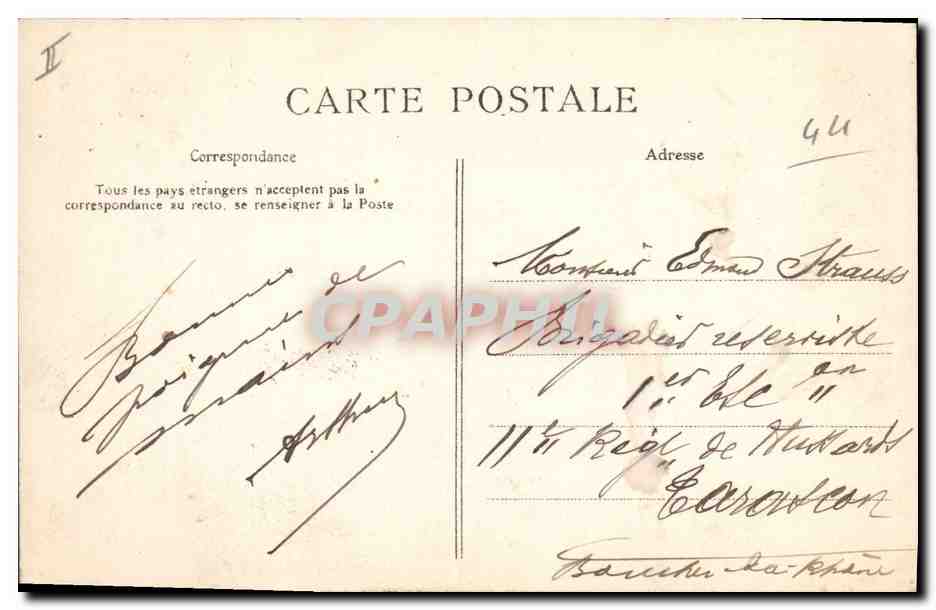 II
CARTE POSTALE
44
Correspondance
Tous les pays étrangers n'acceptent pas la
correspondance au recto, se renseigner à la Poste
Bonne
poignée de
main
Arthur
Adresse
Monsieur Edmond Strauss
Brigadier reserviste
1er Esc on
11e Regt de Hussards
Tarascon
Bouches-du-Rhône
CPAPHIL